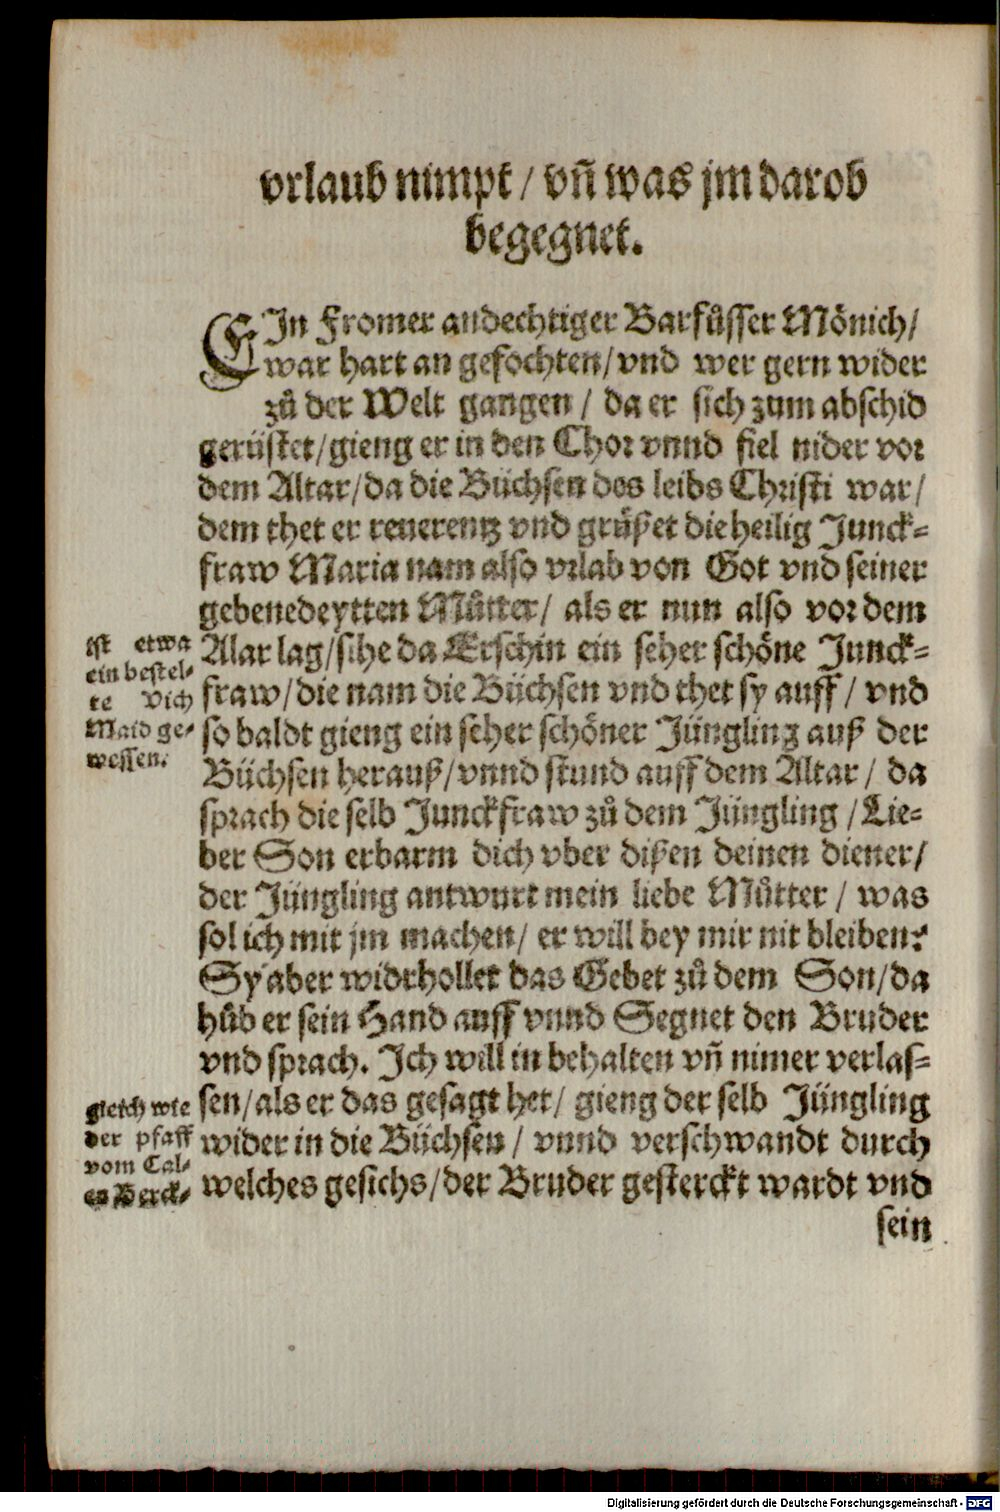 vrlaub nimpt / vñ was jm darob
begegnet.
EJn Fromer andechtiger Barfůsser Mönich/
war hart an gefochten/ vnd wer gern wider
zů der Welt gangen / da er sich zum abschid
gerüstet/ gieng er in den Chor vnnd fiel nider vor
dem Altar/ da die Büchsen des leibs Christi war/
dem thet er reuerentz vnd grüßet die heilig Junck=
fraw Maria nam also vrlab von Got vnd seiner
gebenedeytten Můtter/ als er nun also vor dem
Alar lag/ sihe da Erschin ein seher schöne Junck=
fraw/ die nam die Büchsen vnd thet sy auff / vnd
so baldt gieng ein seher schöner Jüngling auß der
Büchsen herauß/ vnnd stund auff dem Altar / da
sprach die selb Junckfraw zů dem Jüngling / Lie=
ber Son erbarm dich vber dißen deinen diener/
der Jüngling antwurt mein liebe Můtter / was
sol ich mit jm machen/ er will bey mir nit bleiben?
Sy aber widrhollet das Gebet zů dem Son/ da
hůb er sein Hand auff vnnd Segnet den Bruder
vnd sprach. Jch will in behalten vñ nimer verlas=
sen/ als er das gesagt het/ gieng der selb Jüngling
wider in die Büchsen / vnnd verschwandt durch
welches gesichs/ der Bruder gesterckt wardt vnd
sein
ist etwa
ein bestel=
te vich
Maid ge=
wessen.
gleich wie
der pfaff
vom Cal=
en Berck=
Digitalisierung gefördert durch die Deutsche Forschungsgemeinschaft - DFG